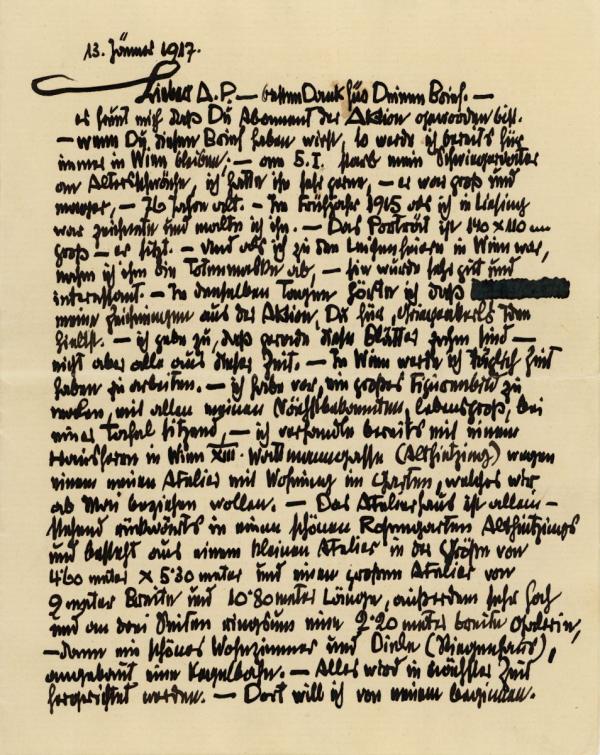 13. Jänner 1917.
Lieber A.P. — besten Dank für Deinen Brief. —
es freut mich daß Du Abonnent der Aktion geworden bist.
— wenn Du diesen Brief haben wirst, so werde ich bereits für
immer in Wien bleiben. — am 5.I. starb mein Schwiegervater
an Altersschwäche, ich hatte ihn sehr gerne, — er war groß und
mager, — 76 Jahre alt. — Im Frühjahr 1915 als ich in Liesing
war zeichnete und malte ich ihn. — Das Porträt ist 140 × 110 cm
groß — er sitzt. — und als ich zu den Leichenfeiern in Wien war,
nahm ich ihm die Totenmaske ab, — sie wurde sehr gut und
interessant. — In denselben Tagen hörte ich daß
meine Zeichnungen aus der Aktion, Du für
hielst. — ich gebe zu, daß gerade diese Blätter sind —
nicht aber alle aus dieser Zeit. — In Wien werde ich täglich Zeit
haben zu arbeiten. — ich habe vor, ein großes Figurenbild zu
machen, mit allen meinen Nächstbekannten, lebensgroß, bei
einer Tafel sitzend, — ich verhandle bereits mit einem
Hausherrn in Wien XIII. Wattmanngasse (Althietzing) wegen
einem neuen Atelier mit Wohnung im Garten, welches wir
ab Mai beziehen wollen. — Das Atelierhaus ist allein-
stehend rückwärts in einem schönen Rosengarten Althietzings
und besteht aus einem kleinen Atelier in der Größe von
4·60 meter × 5·30 meter und einem großen Atelier von
9 meter Breite und 10·80 meter Länge, außerdem sehr hoch
und an drei Seiten ringsum eine 2·20 meter breite Galerie,
— dann ein schönes Wohnzimmer und Diele (Stiegenhaus),
angebaut eine Kegelbahn. — Alles wird in nächster Zeit
hergerichtet werden. — Dort will ich von neuem beginnen.